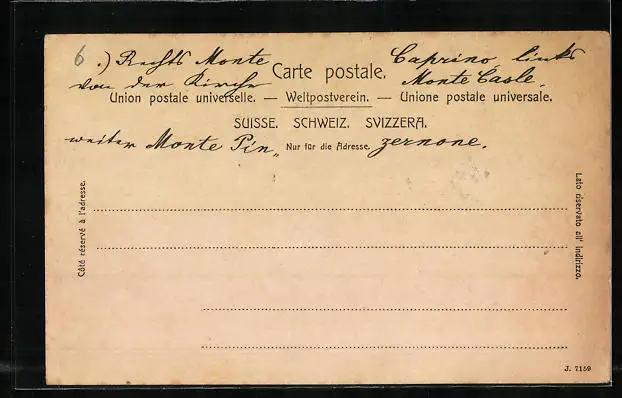 6.) Rechts Monte Caprino, links
von der Kirche Monte Caslé,
Carte postale.
Union postale universelle. — Weltpostverein. — Unione postale universale.
SUISSE. SCHWEIZ. SVIZZERA.
weiter Monte Pin„ zernone.
Nur für die Adresse.
Côté réservé à l'adresse.
Lato riservato all' indirizzo.
J. 7159